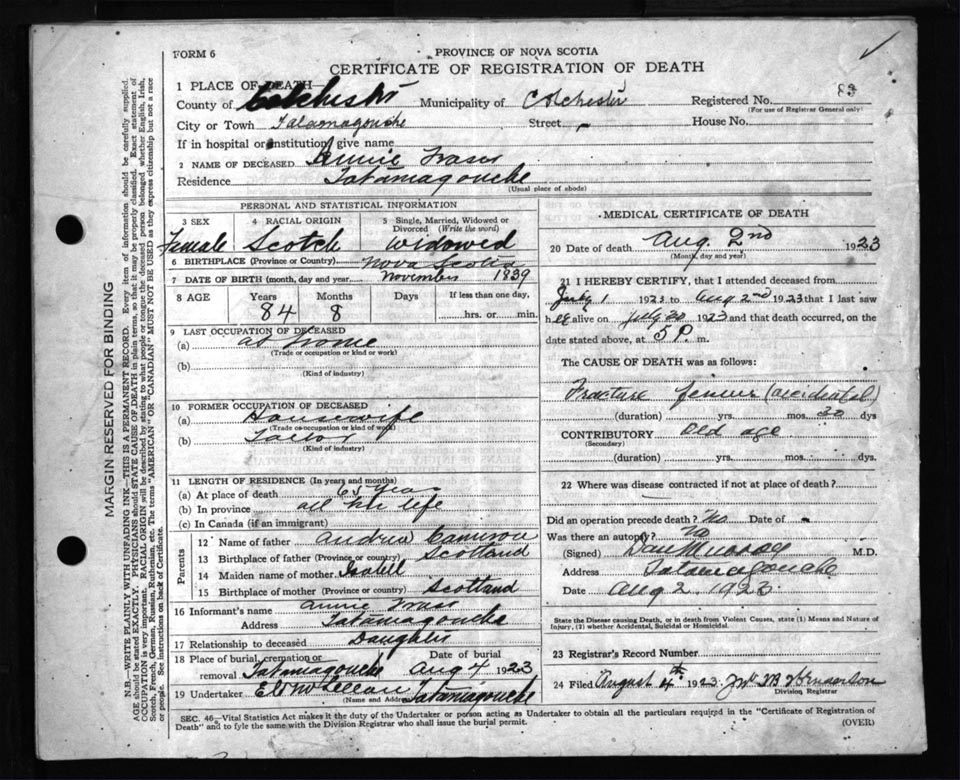 FORM 6
PROVINCE OF NOVA SCOTIA
CERTIFICATE OF REGISTRATION OF DEATH
1 PLACE OF DEATH
County of Colchester Municipality of Colchester Registered No. 83
(For use of Registrar General only)
City or Town Tatamagouche Street House No.
If in hospital or institution, give name
2 NAME OF DECEASED Annie Fraser
Residence Tatamagouche
(Usual place of abode)
PERSONAL AND STATISTICAL INFORMATION
3 SEX 4 RACIAL ORIGIN 5 Single, Married, Widowed or
Divorced (Write the word)
Female Scotch Widowed
6 BIRTHPLACE (Province or Country) Nova Scotia
7 DATE OF BIRTH (month, day and year) November 1839
8 AGE Years Months Days If less than one day,
84 8 hrs. or min.
9 LAST OCCUPATION OF DECEASED
(a) at Home
(Trade or occupation or kind or work)
(b)
(Kind of industry)
10 FORMER OCCUPATION OF DECEASED
(a) Housewife
(Trade or occupation or kind of work)
(b) Tailor
(Kind of industry)
11 LENGTH OF RESIDENCE (In years and months)
(a) At place of death 65 years
(b) In province all her life
(c) In Canada (if an immigrant)
Parents
12 Name of father Andrew Cameron
13 Birthplace of father (Province or country) Scotland
14 Maiden name of mother Isabell
15 Birthplace of mother (Province or country) Scotland
16 Informant's name Annie Fraser
Address Tatamagouche
17 Relationship to deceased Daughter
18 Place of burial, cremation or Date of burial
removal Tatamagouche Aug 4 1923
19 Undertaker McLellan Tatamagouche
(Name and Address)
MEDICAL CERTIFICATE OF DEATH
20 Date of death Aug. 2nd 1923
(Month, day and year)
21 I HEREBY CERTIFY, that I attended deceased from
July 1 1923 to Aug 2nd 1923 that I last saw
her alive on July 30 1923 and that death occurred, on the
date stated above, at 5 P. m.
The CAUSE OF DEATH was as follows:
Fracture femur (accidental)
(duration) yrs. mos. 30 dys
CONTRIBUTORY Old age
(Secondary)
(duration) yrs. mos. dys.
22 Where was disease contracted if not at place of death?
Did an operation precede death? No Date of -
Was there an autopsy? No
(Signed) Dan Murray M.D.
Address Tatamagouche
Date Aug 2 1923
State the Disease causing Death, or in death from Violent Causes, state (1) Means and Nature of
Injury, (2) whether Accidental, Suicidal or Homicidal.
23 Registrar's Record Number
24 Filed August 4th 1923 Henderson
Division Registrar
SEC. 46—Vital Statistics Act makes it the duty of the Undertaker or person acting as Undertaker to obtain all the particulars required in the "Certificate of Registration of
Death" and to fyle the same with the Division Registrar who shall issue the burial permit.
(OVER)
MARGIN RESERVED FOR BINDING
N.B.—WRITE PLAINLY WITH UNFADING INK—THIS IS A PERMANENT RECORD. Every item of information should be carefully supplied.
AGE should be stated EXACTLY. PHYSICIANS should STATE CAUSE OF DEATH in plain terms, so that it may be properly classified. Exact statement of
OCCUPATION is very important. RACIAL ORIGIN will be described by stating to what people or tongue the deceased person belonged whether English, Irish,
Scotch, French, German, Russian, Ruthenian, etc. The terms "AMERICAN" OR "CANADIAN" MUST NOT BE USED as they express citizenship but not a race
or people. See instructions on back of Certificate.